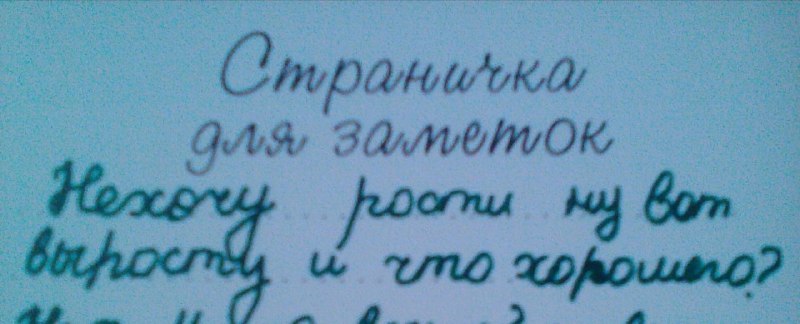 Страничка
для заметок
Нехочу рости ну вот
выросту и что хорошего?